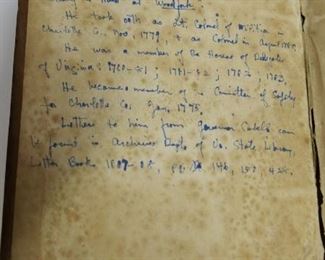 living is home at Woodfork
He took oath as Lt Colonel of Militia in
Charlotte Co., Nov. 1779, & as Colonel in August 1780.
He was a member of the House of Delegates
of Virginia: 1780-81; 1781-82; 1782; 1783.
He became member of Committee of Safety
for Charlotte Co. 1775.
Letters to him from Governor Cabell can
be found in Archives Dept. of Va. State Library,
Letter Book 1807-08, pp.